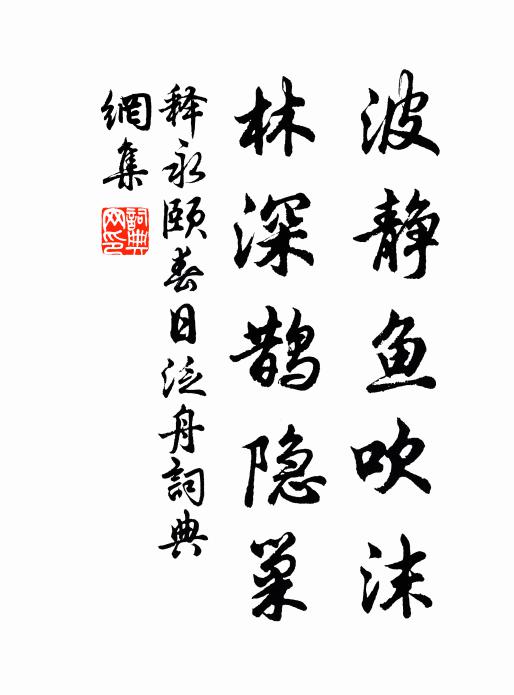 波静鱼吹沫
林深鹊隐巢
释永颐春日泛舟詞典
網集
詞典网印